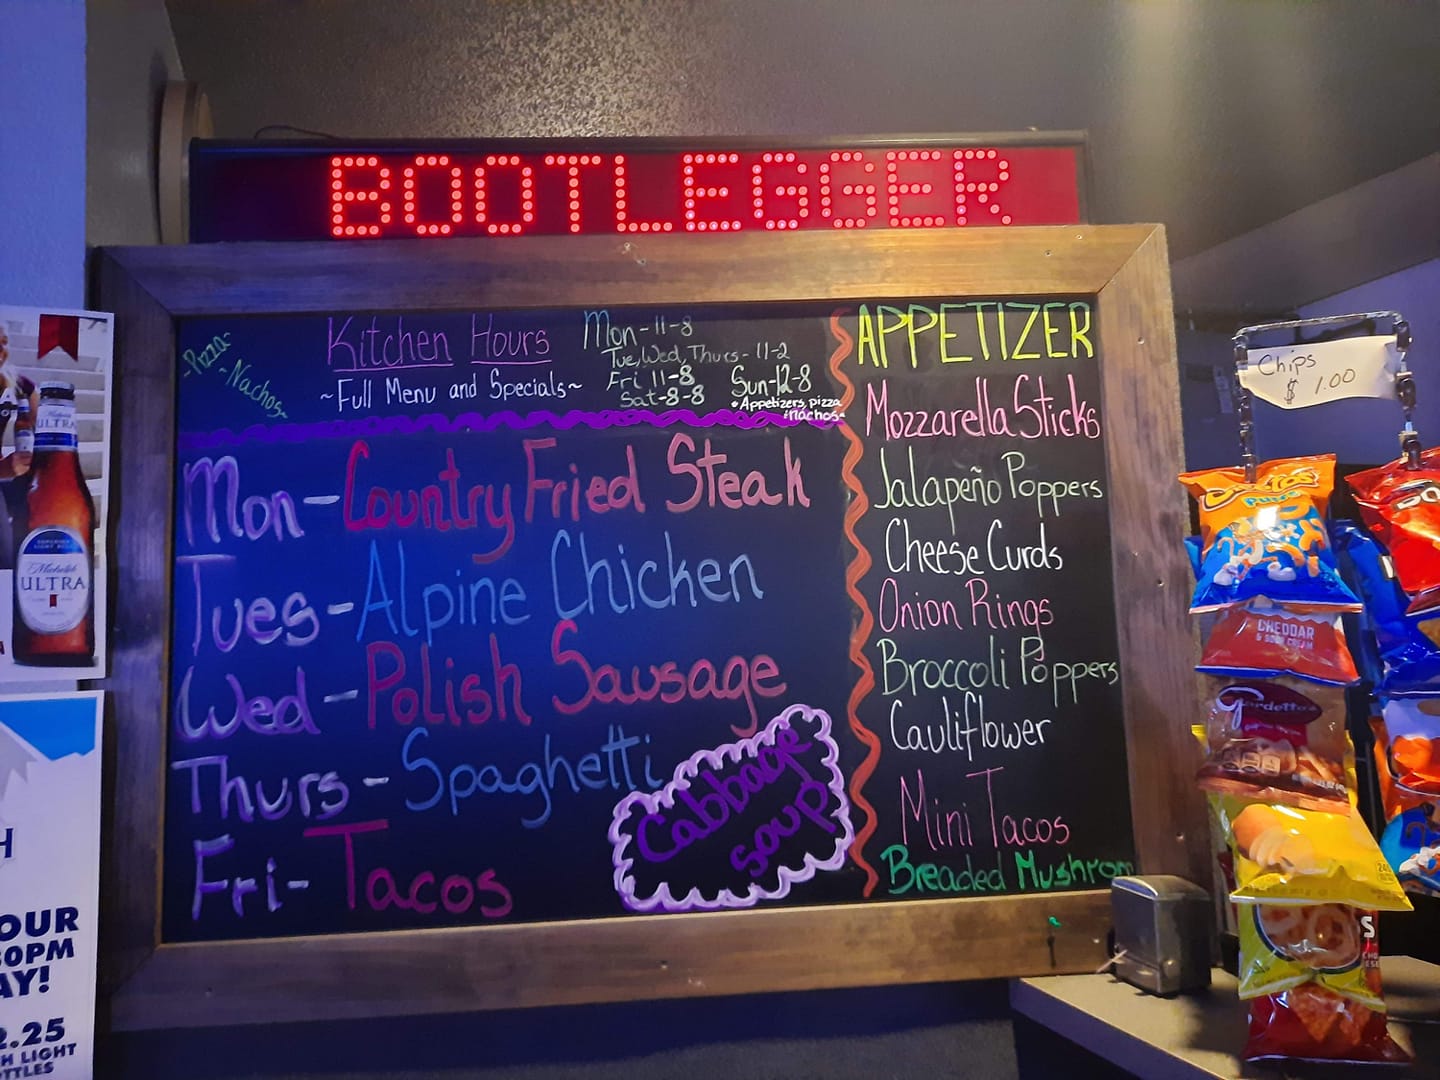 BOOTLEGGER
-Pizza-
-Nachos-
Kitchen Hours
~Full Menu and Specials~
Mon-11-8
Tue, Wed, Thurs-11-2
Fri 11-8
Sat-8-8
Sun-12-8
*Appetizers, pizza
nachos-
Mon-Country Fried Steak
Tues-Alpine Chicken
Wed-Polish Sausage
Thurs-Spaghetti
Fri-Tacos
Cabbage
soup
APPETIZER
Mozzarella Sticks
Jalapeño Poppers
Cheese Curds
Onion Rings
Broccoli Poppers
Cauliflower
Mini Tacos
Breaded Mushrom
Chips
$ 1.00
Cheetos
Puffs
CHEDDAR
& SOUR CREAM
Gardetto's
ULTRA
SUPERIOR
LIGHT BEER
Michelob
ULTRA
H
OUR
30PM
AY!
2.25
H LIGHT
TTLES